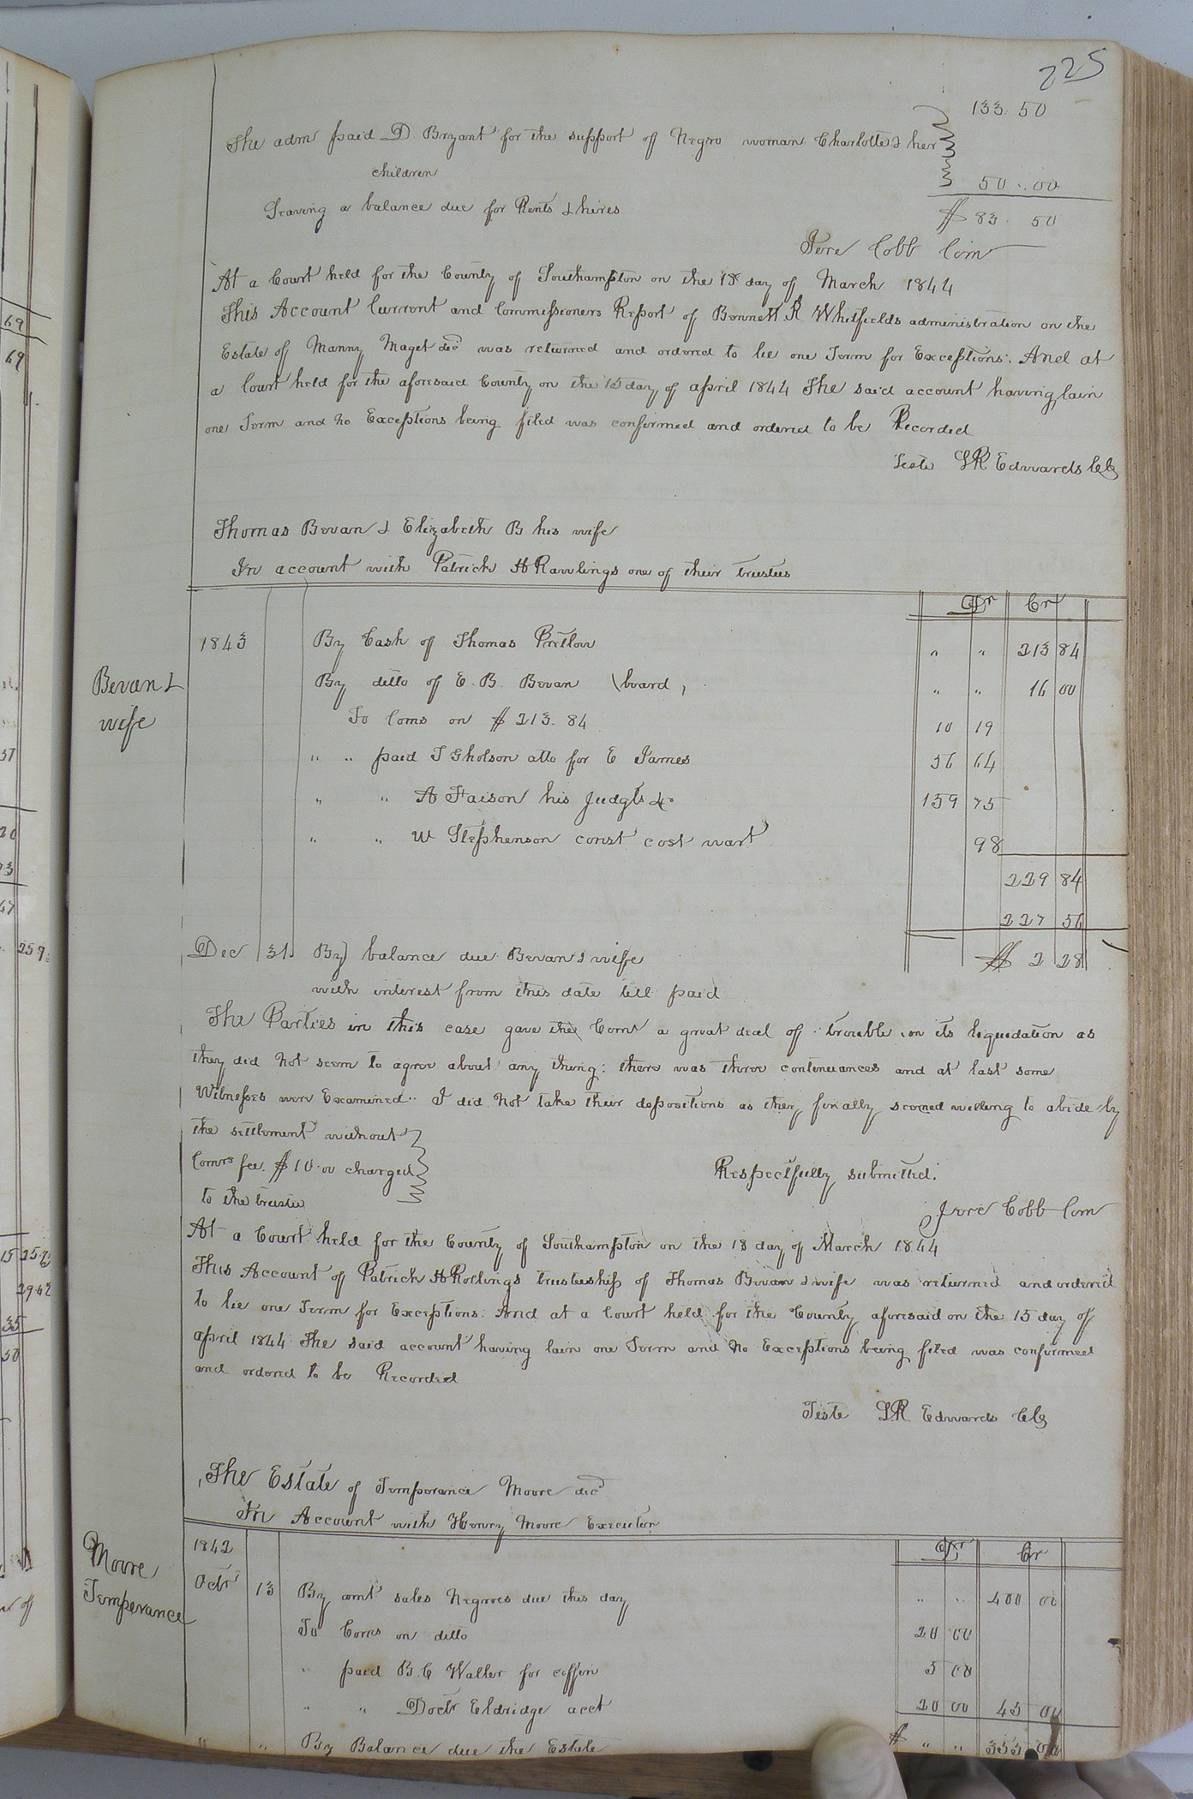 225
133.50
The adm paid D. Bryant for the support of Negro woman Charlotte & her
children
50..00
Leaving a balance due for Rents & hires
$ 83. 50
Jere Cobb Com
At a Court held for the County of Southampton on the 18 day of March 1844
This Account Current and Commissioners Report of Bennett R Whitfields administration on the
Estate of Manny Maget decd was returned and ordered to lie one Term for Exceptions. And at
a Court held for the aforesaid County on the 15 day of april 1844 The said account having lain
one Term and no Exceptions being filed was confirmed and ordered to be Recorded
Teste LR Edwards Clk
Thomas Bevan & Elizabeth B his wife
In account with Patrick H Rawlings one of their trustees
Dr Cr
Bevan &
wife
1843 By Cash of Thomas Pretlow " " 213 84
By ditto of E. B. Bevan (board) " " 16 00
To Coms on $ 213. 84 10 19
" " paid T Gholson atto for E James 56 64
" " A Faison his Judgts &c 159 75
" " W Stephenson const cost wart 98
229 84
227 56
Dec 31 By balance due Bevan & wife $ 2 28
with interest from this date till paid
The Parties in this case gave the Comr a great deal of trouble in its liquidation as
they did not seem to agree about any thing: there was three continuances and at last some
Witnesses were Examined.. I did not take their depositions as they finally seemed willing to abide by
the settlement without
Comrs fee. $10.00 charged
to the trustee
Respectfully submitted.
Jere Cobb Com
At a Court held for the County of Southampton on the 18 day of March 1844
This Account of Patrick H Rollings trusteeship of Thomas Bevan & wife was returned and ordered
to lie one Term for Exceptions. And at a Court held for the County aforesaid on the 15 day of
april 1844 The said account having lain one Term and no Exceptions being filed was confirmed
and ordered to be Recorded
Teste LR Edwards Clk
The Estate of Temperance Moore decd
In Account with Henry Moore Executor
Dr Cr
Moore
Temperance
1842
Octr 13 By amt sales Negroes due this day " " 400 00
To Coms on ditto 20 00
" paid B. C Waller for coffin 5 00
" " Doctr Eldridge acct 20 00 45 00
" " By Balance due the Estate $ " " 355 00